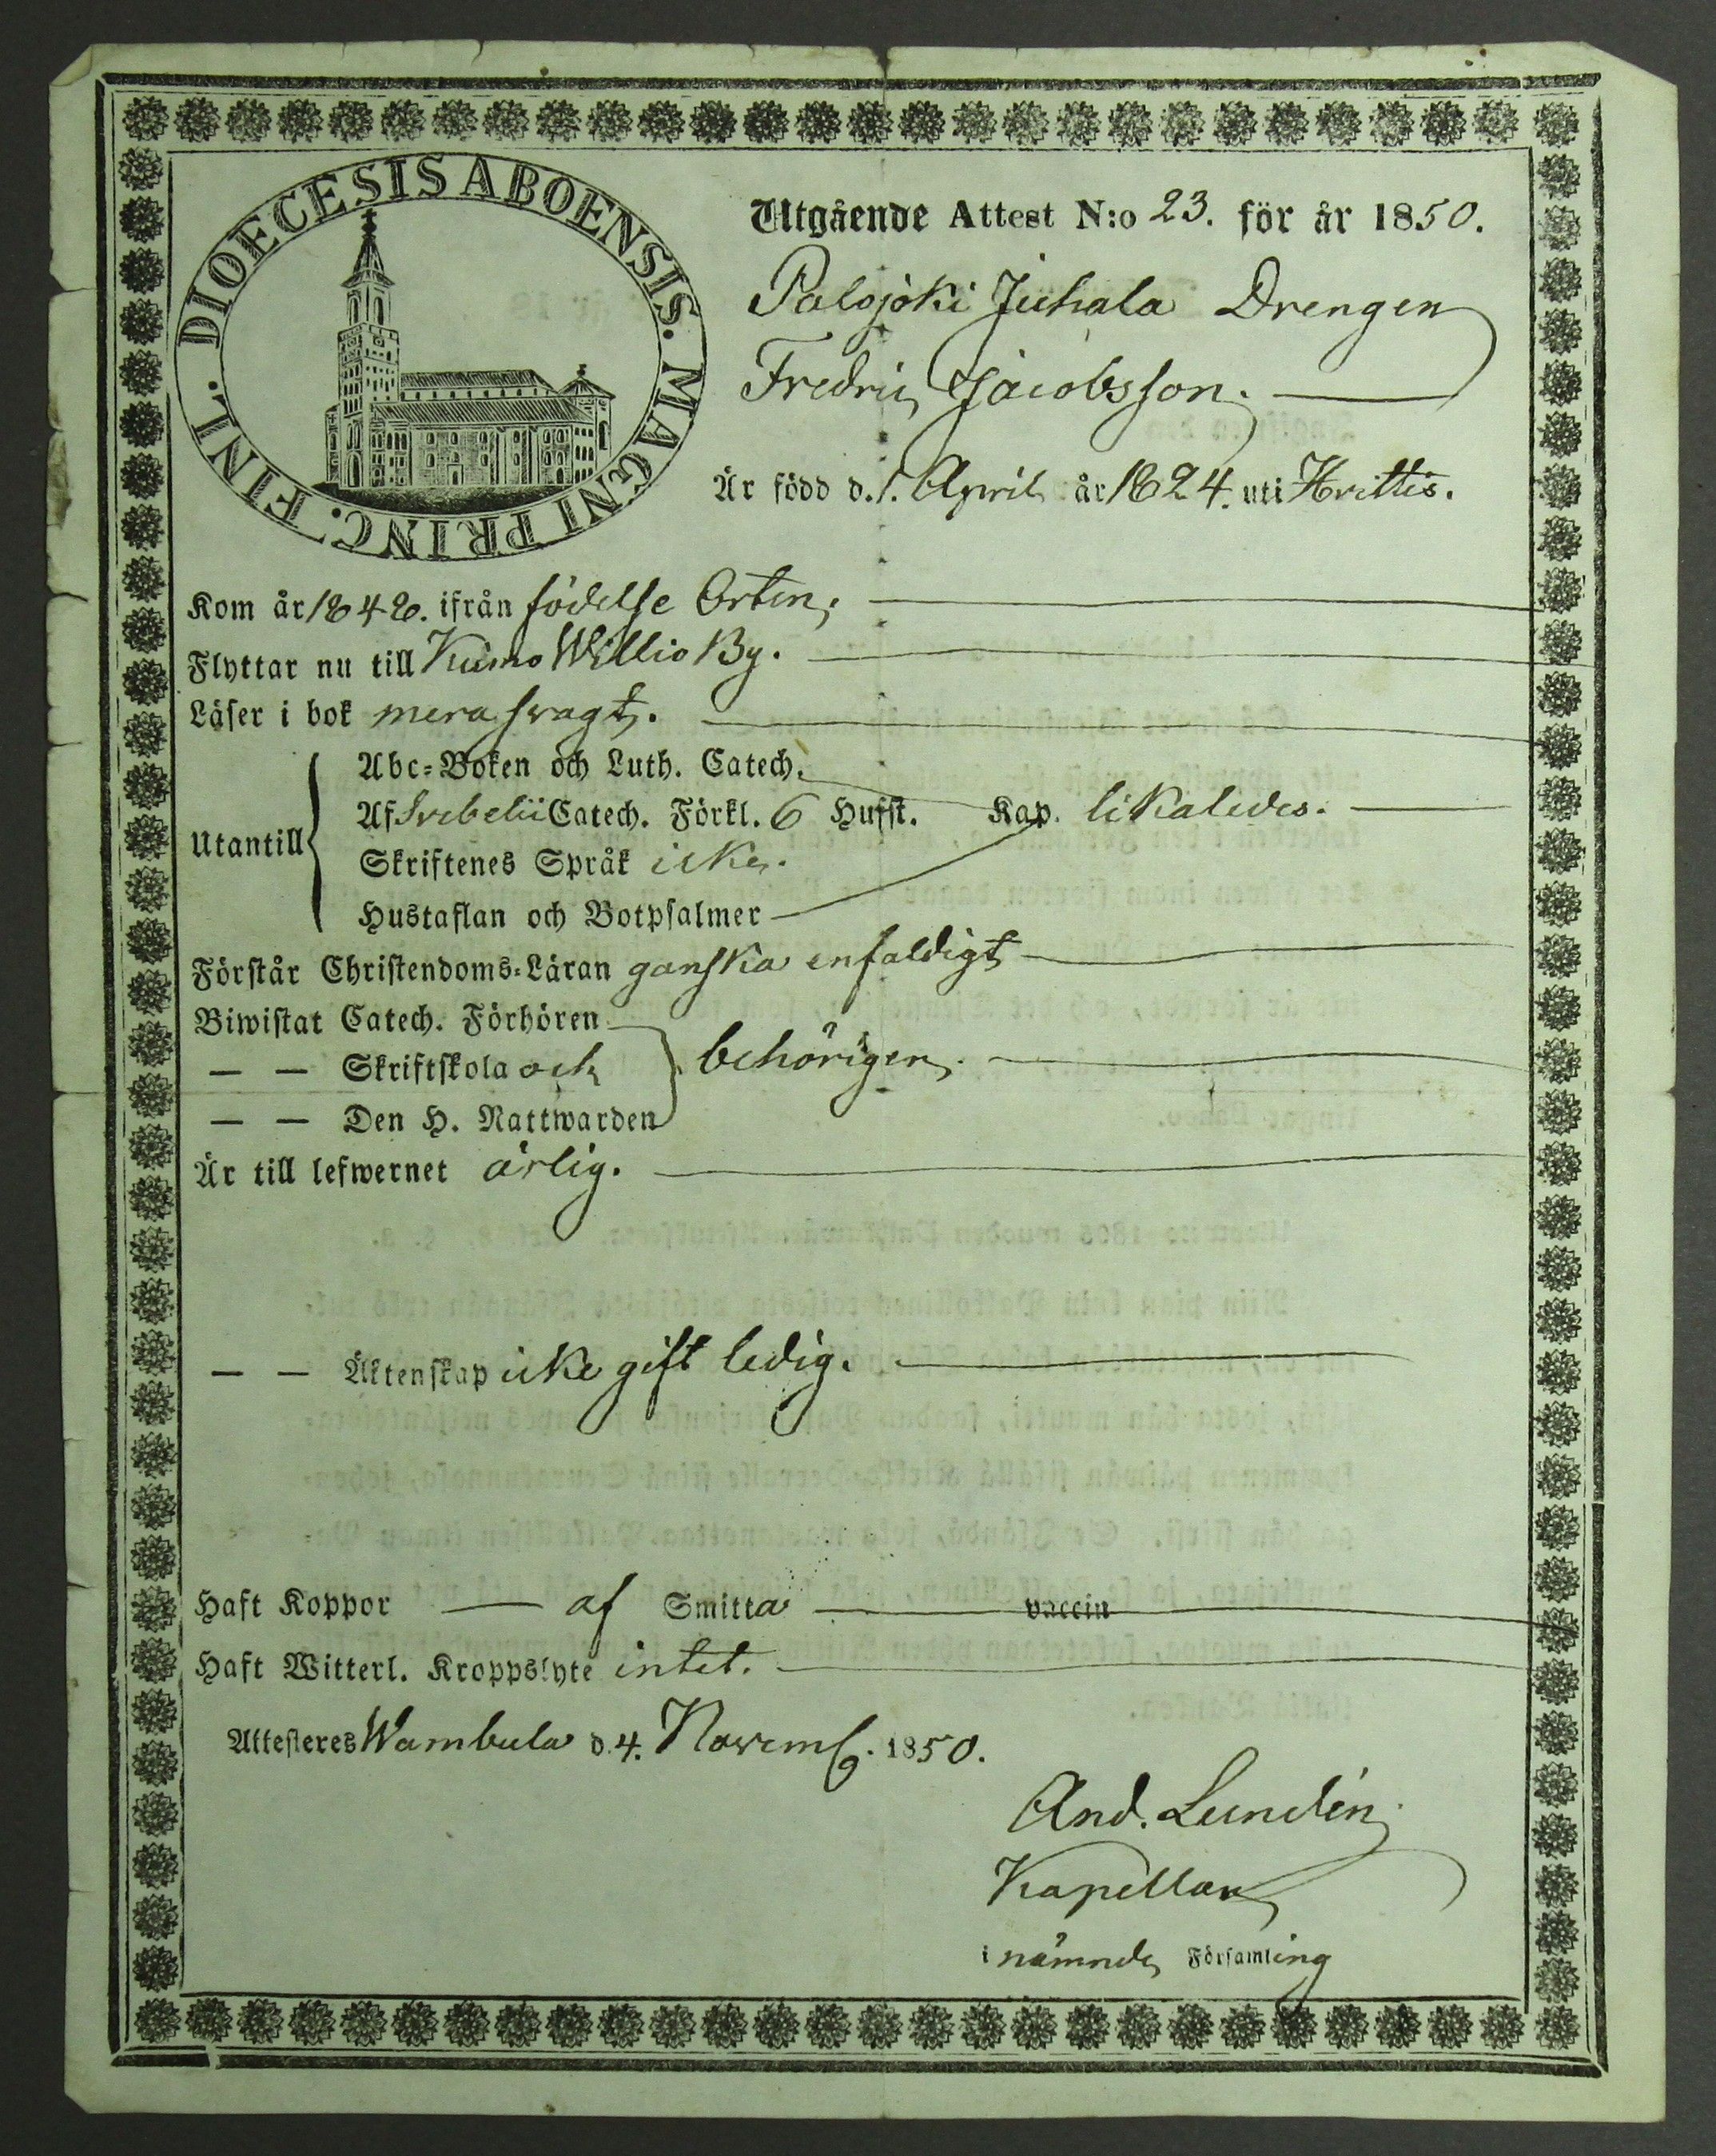 DIOECESIS ABOENSIS. MAGNI PRINC. FINL.
Utgående Attest N:o 23. för år 1850.
Palojoki Juhala Drengen
Fredric Jacobsson.
Är född d. 1. April år 1824. uti Hvittis.
Kom år 1848. ifrån födelse Orten,
Flyttar nu till Kumo Willio By.
Läser i bok mera svagt.
Utantill
Abc-Boken och Luth. Catech.
Af Svebelii Catech. Förkl. 6 Hufst. Kap. likaledes.
Skriftenes Språk icke.
Hustaflan och Botpsalmer
Förstår Christendoms-Läran ganska enfaldigt
Biwistat Catech. Förhören
— — Skriftskola och behörigen.
— — Den H. Nattwarden
Är till lefwernet ärlig.
— — Äktenskap icke gift ledig.
Haft Koppor — af Smitta — vaccin
Haft Witterl. Kroppslyte intet.
Attesteres Wambula d. 4. Novemb. 1850.
And. Lundén
Kapellan
i nämnde Församling